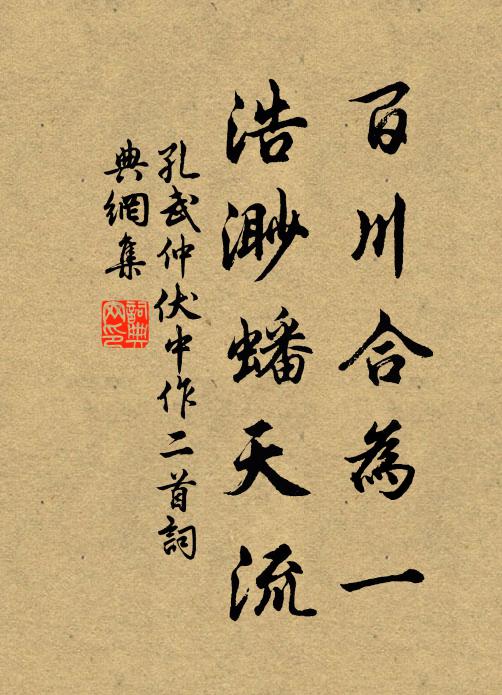 百川合為一
浩渺蟠天流
孔武仲伏中作二首詞
典網集
詞典
網印